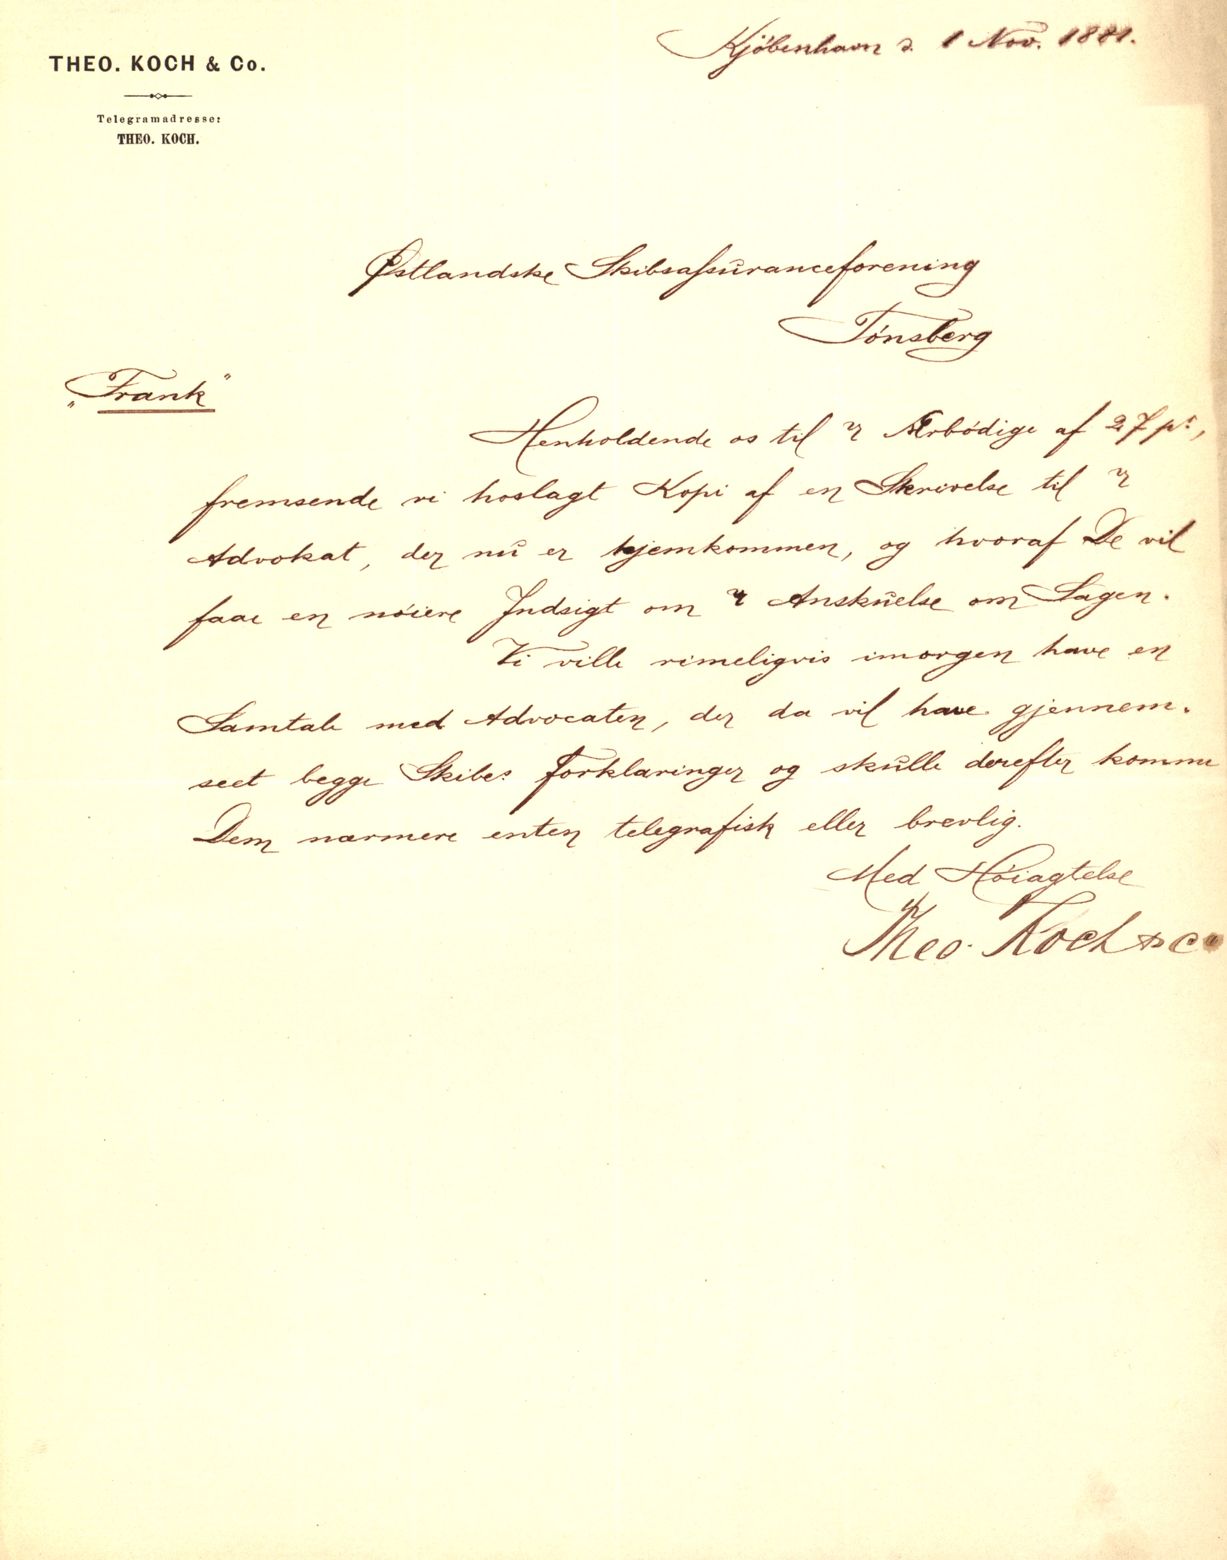 THEO. KOCH & Co.
Telegramadresse:
THEO. KOCH.
Kjöbenhavn d. 1 Nov. 1881.
Østlandske Skibsassuranceforening
Tönsberg
"Frank"
Henholdende os til Ærbödige af 27 ps,
fremsende vi hoslagt Kopi af en Skrivelse til
Advokat, der nu er hjemkommen, og hvoraf De vil
faae en nöiere Indsigt om Anskuelse om Sagen.
Vi ville rimeligvis imorgen have en
Samtale med Advocaten, der da vil have gjennem-
seet begge Skibes Forklaringer og skulle derefter komme
Dem nærmere enten telegrafisk eller brevlig.
Med Höiagtelse
Theo. Koch & Co